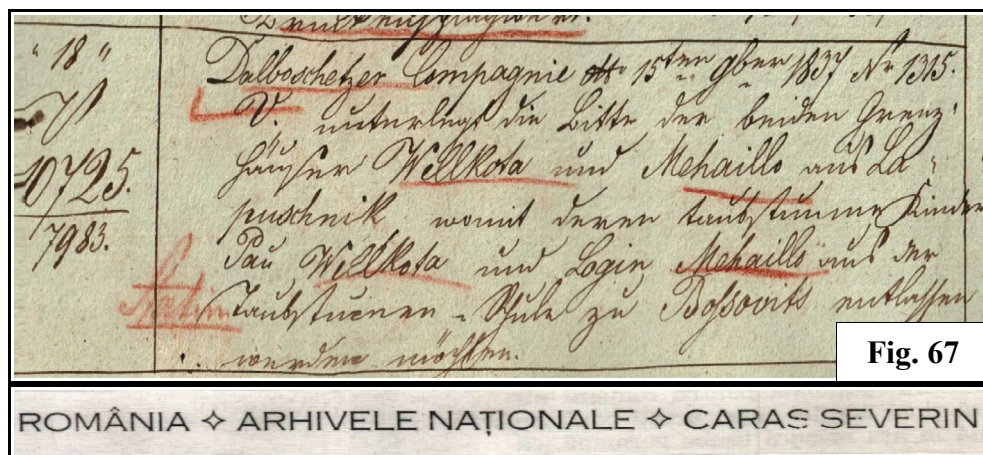 " 18 "
Dalboschetzer Compagnie dto 15ten 9ber 1837 Nr 1315.
V. unterlegt die Bitte der beiden Grenz-
10725. häuser Wellkota und Mehaillo aus La-
puschnik womit deren taubstumme Kinder
7983. Pau Wellkota und Login Mehaillo aus der
Taubstummen-Schule zu Bosovits entlassen
werden möchten.
Fig. 67
ROMÂNIA ✧ ARHIVELE NAȚIONALE ✧ CARAS SEVERIN